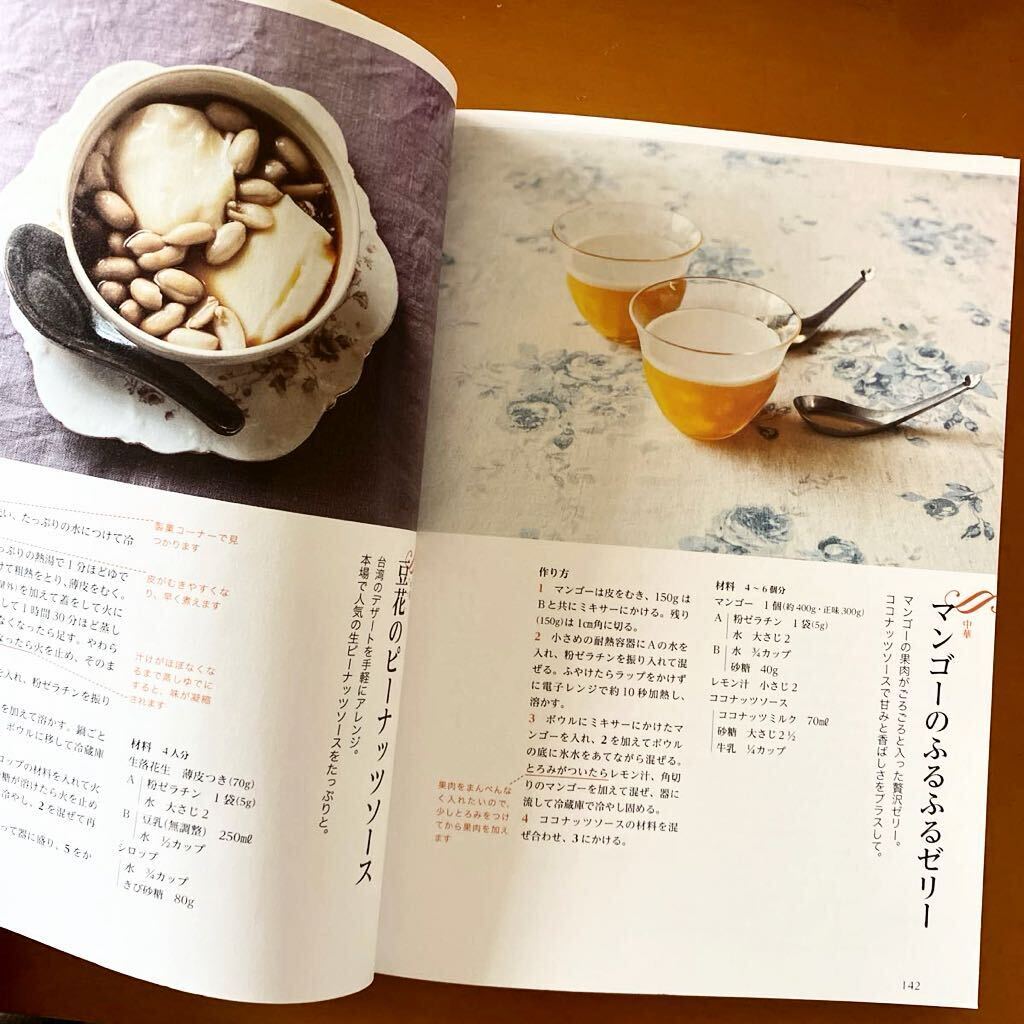 い、たっぷりの水につけて冷
っぷりの熱湯で1分ほどゆで
けて粗熱をとり、薄皮をむく。
を加えて蓋をして火に
して1時間30分ほど蒸し
なくなったら足す。やわら
なったら火を止め、そのま
を入れ、粉ゼラチンを振り
を加えて溶かす。鍋ごと
ボウルに移して冷蔵庫
ロップの材料を入れて火
糖が溶けたら火を止め
冷やし、2を混ぜて再
って器に盛り、5をか
製菓コーナーで見
つかります
皮がむきやすくな
り、早く煮えます
汁けがほぼなくな
るまで蒸しゆでに
すると、味が凝縮
されます
豆花のピーナッツソース
台湾のデザートを手軽にアレンジ。
本場で人気の生ピーナッツソースをたっぷりと。
材料 4人分
生落花生 薄皮つき(70g)
A 粉ゼラチン 1袋(5g)
水 大さじ2
B 豆乳(無調整) 250㎖
水 ½カップ
シロップ
水 ¾カップ
きび砂糖 80g
中華
マンゴーのふるふるゼリー
マンゴーの果肉がごろごろと入った贅沢ゼリー。
ココナッツソースで甘みと香ばしさをプラスして。
材料 4〜6個分
マンゴー 1個(約400g・正味300g)
A 粉ゼラチン 1袋(5g)
水 大さじ2
B 水 ¾カップ
砂糖 40g
レモン汁 小さじ2
ココナッツソース
ココナッツミルク 70㎖
砂糖 大さじ2½
牛乳 ¼カップ
作り方
1 マンゴーは皮をむき、150gは
Bと共にミキサーにかける。残り
(150g)は1㎝角に切る。
2 小さめの耐熱容器にAの水を
入れ、粉ゼラチンを振り入れて混
ぜる。ふやけたらラップをかけず
に電子レンジで約10秒加熱し、
溶かす。
3 ボウルにミキサーにかけたマ
ンゴーを入れ、2を加えてボウル
の底に氷水をあてながら混ぜる。
とろみがついたらレモン汁、角切
りのマンゴーを加えて混ぜ、器に
流して冷蔵庫で冷やし固める。
4 ココナッツソースの材料を混
ぜ合わせ、3にかける。
果肉をまんべんな
く入れたいので、
少しとろみをつけ
てから果肉を加え
ます
142